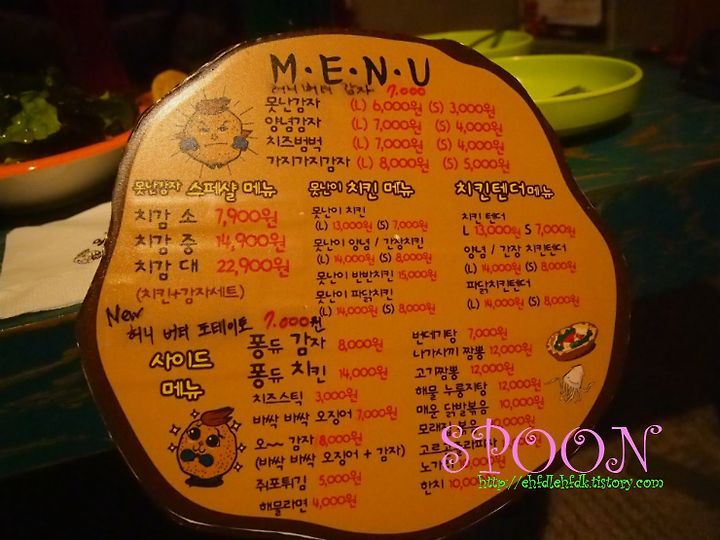 M·E·N·U
허니 버터 감자 7.000
못난감자 (L) 6,000원 (S) 3,000원
양념감자 (L) 7,000원 (S) 4,000원
치즈범벅 (L) 7,000원 (S) 4,000원
가지가지감자 (L) 8,000원 (S) 5,000원
못난감자 스페샬 메뉴
치감 소 7,900원
치감 중 14,900원
치감 대 22,900원
(치킨+감자세트)
못난이 치킨 메뉴
못난이 치킨
(L) 13,000원 (S) 7,000원
못난이 양념 / 간장치킨
(L) 14,000원 (S) 8,000원
못난이 반반치킨 15,000원
못난이 파닭치킨
(L) 14,000원 (S) 8,000원
치킨텐더메뉴
치킨 텐더
L 13,000원 S 7,000원
양념 / 간장 치킨텐더
(L) 14,000원 (S) 8,000원
파닭치킨텐더
(L) 14,000원 (S) 8,000원
New
허니 버터 포테이토 7.000원
사이드
메뉴
퐁듀 감자 8,000원
퐁듀 치킨 14,000원
치즈스틱 3,000원
바싹 바싹 오징어 7,000원
오~~ 감자 8,000원
(바싹 바싹 오징어 + 감자)
쥐포튀김 5,000원
해물라면 4,000원
번데기탕 7,000원
나가사끼 짬뽕 12,000원
고기짬뽕 12,000원
해물 누룽지탕 12,000원
매운 닭발볶음 10,000원
한치 10,00
SPOON
http://ehfdlehfdk.tistory.com